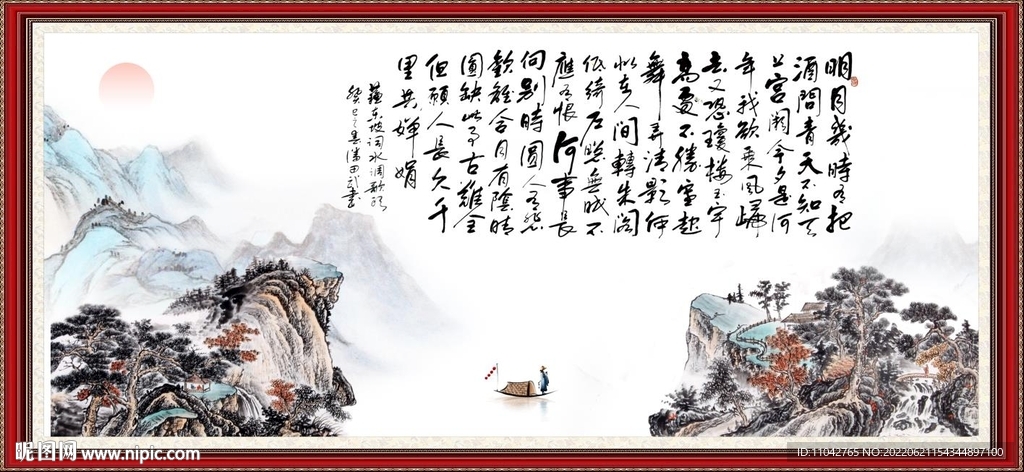 明月幾時有把
酒問青天不知天
上宮闕今夕是何
年我欲乘風歸
去又恐瓊樓玉宇
高處不勝寒起
舞弄清影何
似在人間轉朱閣
低綺戶照無眠不
應有恨何事長
向別時圓人有悲
歡離合月有陰晴
圓缺此事古難全
但願人長久千
里共嬋娟
蘇東坡詞水調歌頭
昵图网 www.nipic.com
ID:11042765 NO:20220621154344897100